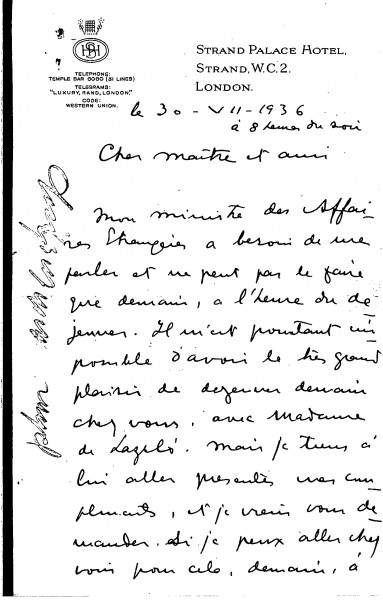 SH
TELEPHONE:
TEMPLE BAR 8080 (81 LINES)
TELEGRAMS:
"LUXURY, RAND, LONDON."
CODE:
WESTERN UNION.
STRAND PALACE HOTEL,
STRAND, W.C.2.
LONDON.
le 30 - VII - 1936
à 8 heures du soir
Cher maître et ami
Mon ministre des Affai
res Etrangères a besoin de me
parler et ne peut pas le faire
que demain, a l'heure du dé
jeuner. Il m'est pourtant im
possible d'avoir le très grand
plaisir de dejeuner demain
chez vous, avec Madame
de Lazlò. Mais je tiens à
lui aller presenter mes com
pliments, et je viens vous de
mander si je peux aller chez
vous pour cela, demain, à